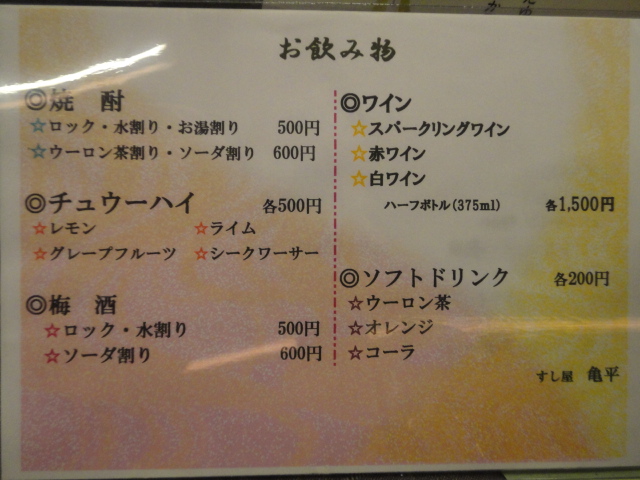 お飲み物
◎焼 酎
☆ロック・水割り・お湯割り 500円
☆ウーロン茶割り・ソーダ割り 600円
◎チュウーハイ 各500円
☆レモン ☆ライム
☆グレープフルーツ ☆シークワーサー
◎梅 酒
☆ロック・水割り 500円
☆ソーダ割り 600円
◎ワイン
☆スパークリングワイン
☆赤ワイン
☆白ワイン
ハーフボトル(375ml) 各1,500円
◎ソフトドリンク 各200円
☆ウーロン茶
☆オレンジ
☆コーラ
すし屋 亀平